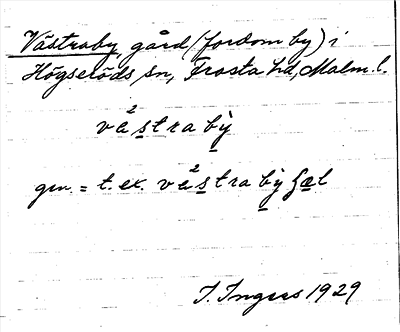 Västraby, gård (fordom by) i
Högseröds sn, Frosta hd, Malm. l.
vä²straby̖
gen. = t. ex. vä²straby̖ fæl
I. Ingers 1929